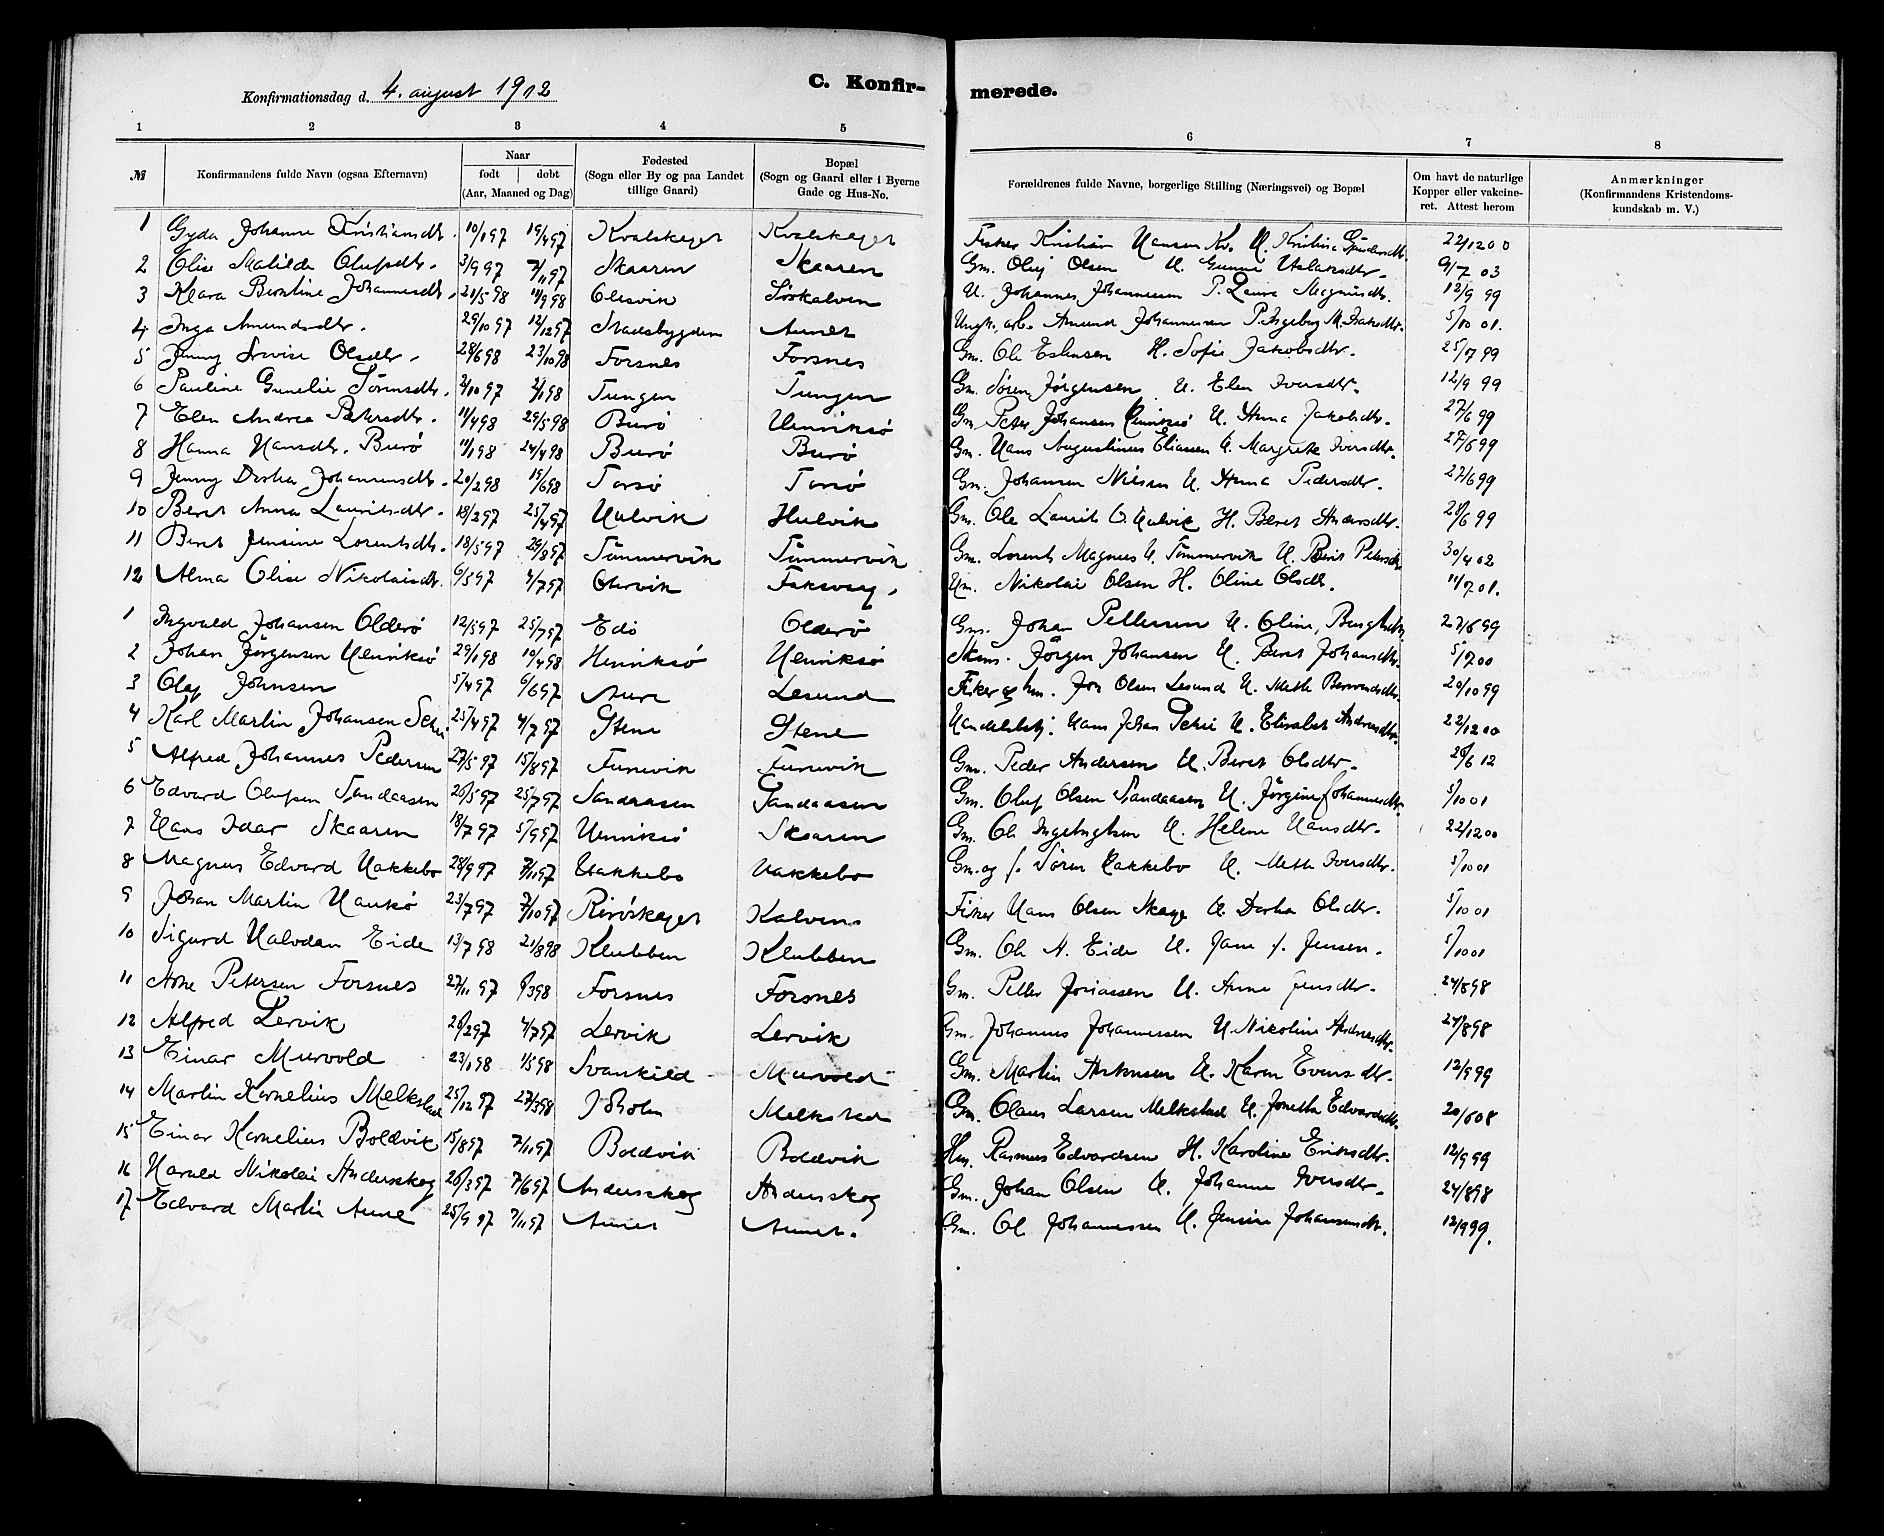 Konfirmationsdag d. 4. august 1912 C. Konfir- merede.
1 2 3 4 5 6 7 8
№ Konfirmandens fulde Navn (ogsaa Efternavn) Naar født døbt (Aar, Maaned og Dag) Fødested (Sogn eller By og paa Landet tillige Gaard) Bopæl (Sogn og Gaard eller i Byerne Gade og Hus-No. Forældrenes fulde Navne, borgerlige Stilling (Næringsvei) og Bopæl Om havt de naturlige Kopper eller vakcineret. Attest herom Anmærkninger (Konfirmandens Kristendomskundskab m. V.)
1 Gyda Johanne Kristiansdtr. 10/1 97 19/4 97 Kvalskaget Kvalskaget Fisker Kristian Hansen Kv. H. Kristine 22/12 00
2 Elise Matilde Olufsdtr. 3/9 97 7/11 97 Skaaren Skaaren Gm. Oluf Olsen H. Gunne Aslaksdtr. 9/7 03
3 Klara Berntine Johannesdtr. 21/5 98 11/9 98 Olesvik Sørkalven U. Johannes Johannessen P. Laura Magnusdtr. 12/9 99
4 Inga Amundsdtr. 29/10 97 12/12 97 Stadsbygden Aunet Ungk. arb. Amund Johannessen P. Ingeborg M. Isaksdtr. 5/10 01.
5 Jenny Lovise Olsdtr. 28/6 98 23/10 98 Forsnes Forsnes Gm. Ole Eslensen H. Sofie Jakobsdtr. 25/7 99
6 Pauline Gunelie Sørensdtr. 2/10 97 2/1 98 Tungen Tungen Gm. Søren Jørgensen H. Elen Iversdtr. 12/9 99
7 Elen Andrea Petersdtr. 11/4 98 29/5 98 Burø Henriksø Gm. Peter Johansen Henriksø H. Anna Jakobsdtr. 27/6 99
8 Hanna Hansdtr. Burø 11/1 98 24/4 98 Burø Burø Gm. Hans Augustinus Eliassen H. Margrete Iversdtr. 27/6 99
9 Jenny Dortea Johannesdtr. 20/2 98 19/6 98 Torsø Torsø Gm. Johansen Nilsen H. Anna Pedersdtr. 27/6 99
10 Beret Anna Lauritsdtr. 18/2 97 25/4 97 Hulvik Hulvik Gm. Ole Laurits O. Hulvik H. Beret Andersdtr. 28/6 99
11 Beret Jensine Lorentsdtr. 18/5 97 29/8 97 Tømmervik Tømmervik Gm. Lorents Magnus H. Tømmervik H. Berit Petersdtr. 30/4 02
12 Alma Elise Nikolaisdtr. 6/3 97 4/7 97 Olervik Gm. Nikolai Olsen H. Oline Olsdtr. 11/7 01.
1 Ingvald Johansen Olderø 12/5 97 25/7 97 Edø Olderø Gm. Johan Pettersen H. Oline 27/6 99
2 Johan Jørgensen Henriksø 29/1 98 10/4 98 Henriksø Henriksø Skm. Jørgen Johansen H. Beret Johansdtr. 5/7 00
3 Olaf Johnsen 5/4 97 6/6 97 Aure Lesund Fisker og hm. Jon Olsen Lesund H. Mette Berentsdtr. 20/10 99
4 Karl Martin Johansen 25/4 97 4/7 97 Stene Stene Handelsbetj. Hans Johan Petri H. Elisabet Andreasdtr. 22/12 00
5 Alfred Johannes Pedersen 27/5 97 15/8 97 Funevik Funevik Gm. Peder Andersen H. Beret Olsdtr. 28/6 12
6 Edvard Olufsen Sandaasen 26/5 97 25/7 97 Sandaasen Sandaasen Gm. Oluf Olsen Sandaasen H. Jørgine Johannesdtr. 5/10 01
7 Hans Idar Skaaren 18/7 97 5/9 97 Henriksø Skaaren Gm. Ole Ingebrigtsen H. Helene Hansdtr. 22/12 00
8 Magnus Edvard Hakkebo 28/9 97 7/11 97 Hakkebo Hakkebo Gm. og f. Søren Hakkebo H. Mette Iversdtr. 5/10 01
9 Johan Martin Haukø 23/7 97 3/10 97 Rørøskaget Kalvens Fisker Hans Olsen Skage H. Dortea Olsdtr. 5/10 01
10 Sigurd Halvdan Eide 13/7 98 21/8 98 Klubben Klubben Gm. Ole A. Eide H. Jane f. Jensen. 5/10 01
11 Arne Petersen Forsnes 27/11 97 6/3 98 Forsnes Forsnes Gm. Petter Jonassen H. Anne Jensdtr. 24/8 98
12 Alfred Lervik 28/2 97 4/7 97 Lervik Lervik Gm. Johannes Johannessen H. Nikoline Andreasdtr. 24/8 98
13 Einar Murvold 23/1 98 1/5 98 Svankild Murvold Gm. Martin Antonsen H. Karen Evensdtr. 12/9 99
14 Martin Kornelius Melkstad 25/12 97 27/3 98 Melkstad Gm. Olaus Larsen Melkstad H. Jonetta Edvardsdtr. 20/6 08
15 Einar Kornelius Boldvik 15/8 97 7/11 97 Boldvik Boldvik Hm. Rasmus Edvardsen H. Karoline Eriksdtr. 12/9 99
16 Harald Nikolai Anderskog 28/3 97 7/6 97 Anderskog Anderskog Gm. Johan Olsen H. Johanne Iversdtr. 24/8 98
17 Edvard Martin Aune 25/9 97 7/11 97 Aunet Aunet. Gm. Ole Johannessen H. Jensine Johansensdtr. 12/9 99.